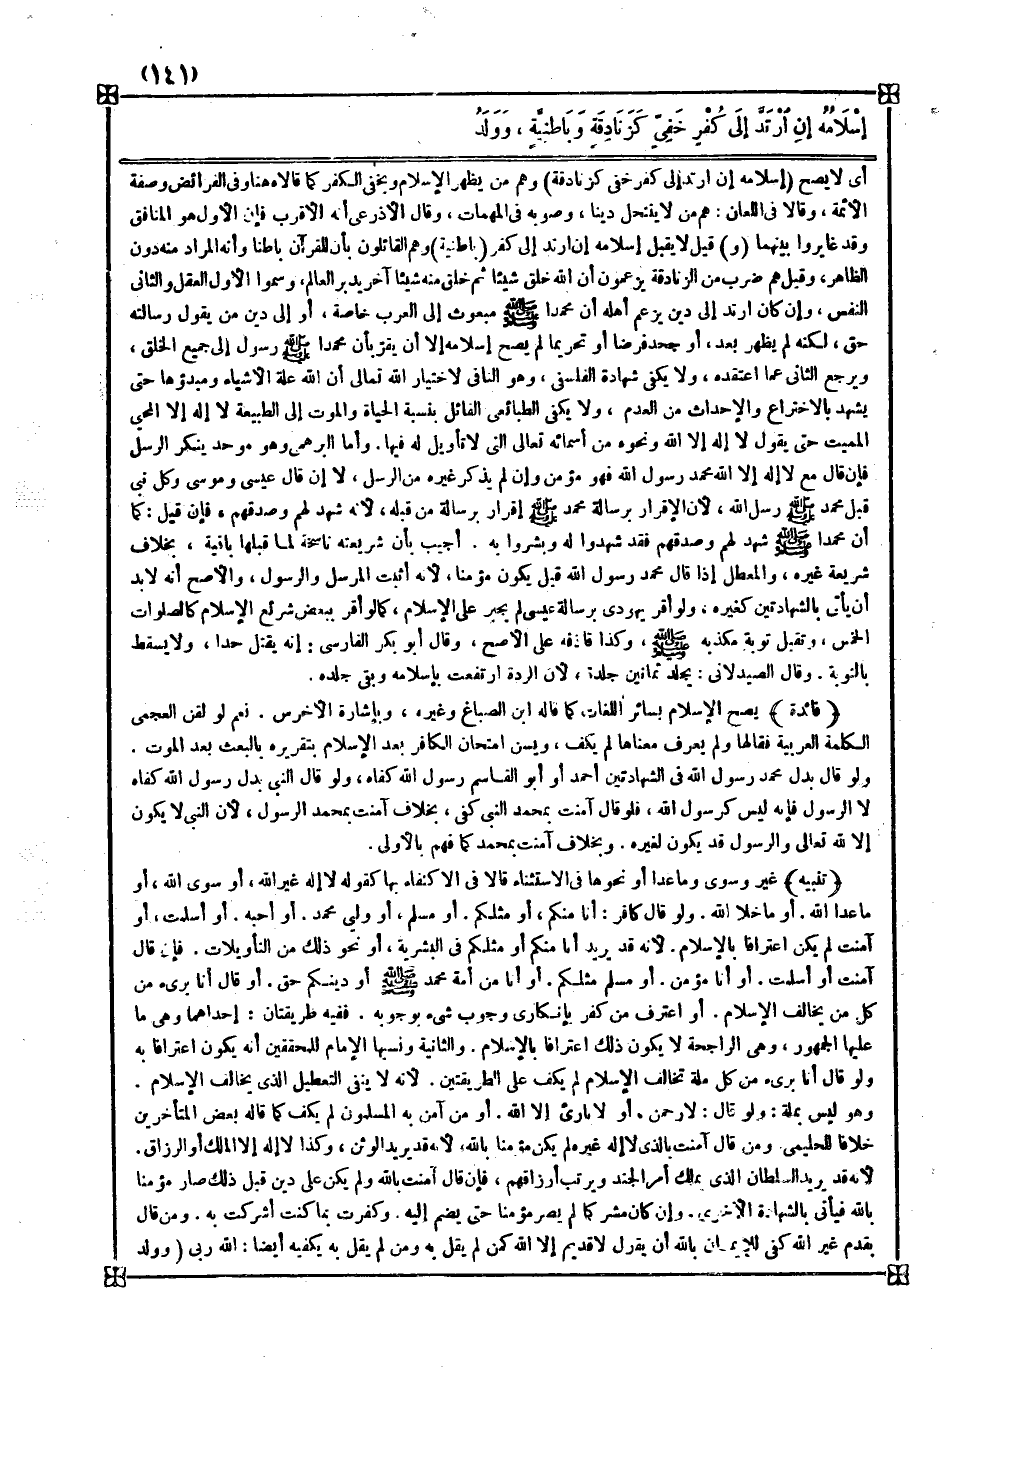 (١٤١)
إِسْلَامُهُ إِنِ ارْتَدَّ إِلَى كُفْرٍ خَفِيٍّ كَزَنَادِقَةٍ وَبَاطِنِيَّةٍ ، وَوَلَدُ
أى لا يصح (إسلامه إن ارتد إلى كفر خفى كزنادقة) وهم من يظهر الإسلام ويخفى الكفر كما قالاه هنا وفى الفرائض وصفة
الأئمة ، وقالا فى اللعان : هم من لا ينتحل دينا ، وصوبه فى المهمات ، وقال الأذرعى أنه الأقرب فإن الأول هو المنافق
وقد غايروا بينهما (و) قيل لا يقبل إسلامه إن ارتد إلى كفر (باطنية) وهم القائلون بأن للقرآن باطنا وأنه المراد منه دون
الظاهر ، وقيل هم ضرب من الزنادقة يزعمون أن الله خلق شيئا ثم خلق منه شيئا آخر يدبر العالم، وسموا الأول العقل والثانى
النفس ، وإن كان ارتد إلى دين يزعم أهله أن محمدا ﷺ مبعوث إلى العرب خاصة ، أو إلى دين من يقول رسالته
حق ، لكنه لم يظهر بعد ، أو جحد فرضا أو تحريما لم يصح إسلامه إلا أن يقرّ بأن محمدا ﷺ رسول إلى جميع الخلق ،
ويرجع الثانى عما اعتقده ، ولا يكفى شهادة الفلسفى ، وهو النافى لاختيار الله تعالى أن الله علة الأشياء ومبدؤها حتى
يشهد بالاختراع والإحداث من العدم ، ولا يكفى الطبائعى القائل بنسبة الحياة والموت إلى الطبيعة لا إله إلا المحيى
المميت حتى يقول لا إله إلا الله ونحوه من أسمائه تعالى التى لا تأويل له فيها . وأما البرهمى وهو موحد ينكر الرسل
فإن قال مع لا إله إلا الله محمد رسول الله فهو مؤمن وإن لم يذكر غيره من الرسل ، لا إن قال عيسى وموسى وكل نبى
قبل محمد ﷺ رسل الله ، لأن الإقرار برسالة محمد ﷺ إقرار برسالة من قبله ، لأنه شهد لهم وصدقهم ، فإن قيل : كما
أن محمدا ﷺ شهد لهم وصدقهم فقد شهدوا له وبشروا به . أجيب بأن شريعته ناسخة لما قبلها باقية ، بخلاف
شريعة غيره ، والمعطل إذا قال محمد رسول الله قيل يكون مؤمنا ، لأنه أثبت المرسل والرسول ، والأصح أنه لابد
أن يأتى بالشهادتين كغيره ، ولو أقر يهودى برسالة عيسى لم يجبر على الإسلام ، كما لو أقر ببعض شرائع الإسلام كالصلوات
الخمس ، وتقبل توبة مكذبه ﷺ ، وكذا قاذفه على الأصح ، وقال أبو بكر الفارسى : إنه يقتل حدا ، ولا يسقط
بالتوبة . وقال الصيدلانى : يجلد ثمانين جلدة ، لأن الردة ارتفعت بإسلامه وبقى جلده .
﴿ فائدة ﴾ يصح الإسلام بسائر اللغات كما قاله ابن الصباغ وغيره ، وبإشارة الأخرس . نعم لو لقن العجمى
الكلمة العربية فقالها ولم يعرف معناها لم يكف ، ويسن امتحان الكافر بعد الإسلام بتقريره بالبعث بعد الموت .
ولو قال بدل محمد رسول الله فى الشهادتين أحمد أو أبو القاسم رسول الله كفاه ، ولو قال النبى بدل رسول الله كفاه
لا الرسول فإنه ليس كرسول الله ، فلو قال آمنت بمحمد النبى كفى ، بخلاف آمنت بمحمد الرسول ، لأن النبى لا يكون
إلا لله تعالى والرسول قد يكون لغيره . وبخلاف آمنت بمحمد كما فهم بالأولى .
﴿ تنبيه ﴾ غير وسوى وماعدا أو نحوها فى الاستثناء قالا فى الاكتفاء بها كقوله لا إله غير الله ، أو سوى الله ، أو
ماعدا الله . أو ما خلا الله . ولو قال كافر : أنا منكم ، أو مثلكم . أو مسلم ، أو ولى محمد . أو أحبه . أو أسلمت ، أو
آمنت لم يكن اعترافا بالإسلام . لأنه قد يريد أنا منكم أو مثلكم فى البشرية ، أو نحو ذلك من التأويلات . فإن قال
آمنت أو أسلمت . أو أنا مؤمن . أو مسلم مثلكم . أو أنا من أمة محمد ﷺ أو دينكم حق . أو قال أنا برىء من
كل من يخالف الإسلام . أو اعترف من كفر بإنكارى وجوب شىء بوجوبه . ففيه طريقتان : إحداهما وهى ما
عليها الجمهور ، وهى الراجحة لا يكون ذلك اعترافا بالإسلام . والثانية ونسبها الإمام للمحققين أنه يكون اعترافا به
ولو قال أنا برىء من كل ملة تخالف الإسلام لم يكف على الطريقتين . لأنه لا ينفى التعطيل الذى يخالف الإسلام .
وهو ليس بملة : ولو قال : لا رحمن ، أو لا بارئ إلا الله . أو من آمن به المسلمون لم يكف كما قاله بعض المتأخرين
خلافا للحليمى ومن قال آمنت بالذى لا إله غيره لم يكن مؤمنا بالله، لأنه قد يريد الوثن ، وكذا لا إله إلا المالك أو الرزاق .
لأنه قد يريد السلطان الذى يملك أمر الجند ويرتب أرزاقهم ، فإن قال آمنت بالله ولم يكن على دين قبل ذلك صار مؤمنا
بالله فيأتى بالشهادة الأخرى . وإن كان مشركا لم يصر مؤمنا حتى يضم إليه . وكفرت بما كنت أشركت به . ومن قال
بقدم غير الله كفى للإيمان بالله أن يقول لا قديم إلا الله كمن لم يقل به ومن لم يقل به يكفيه أيضا : الله ربى (وولد